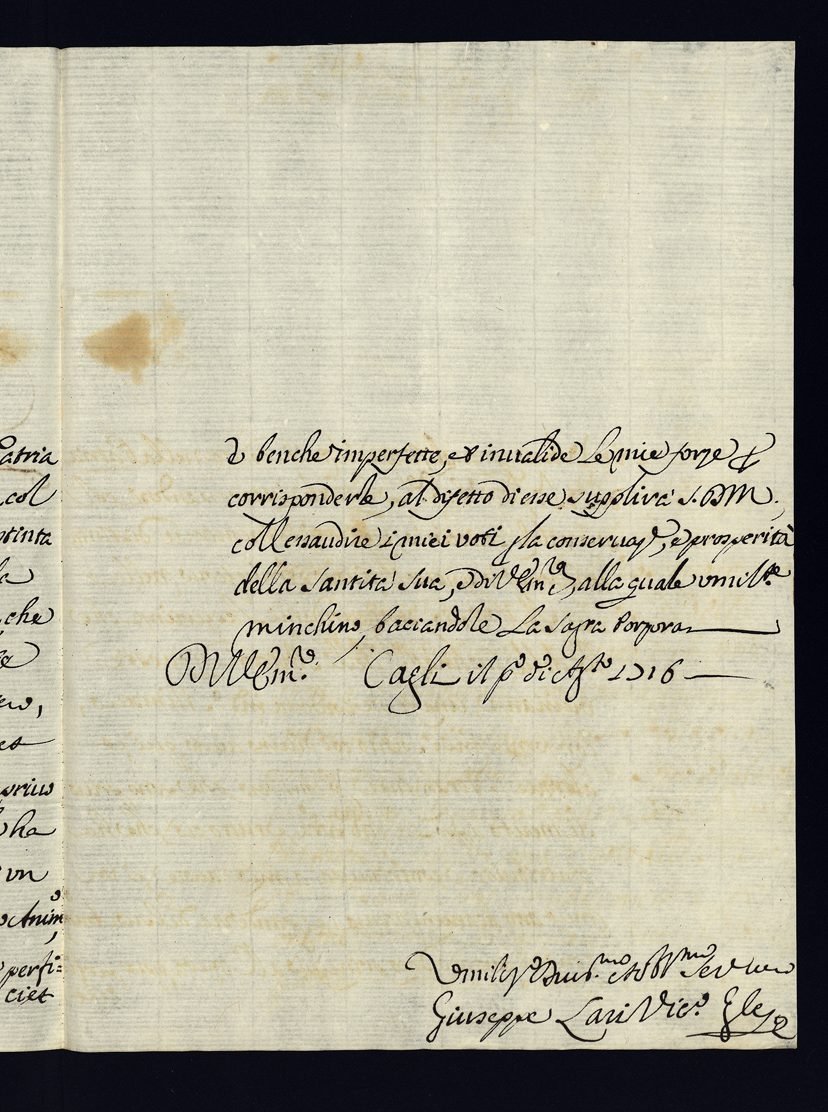 Patria
col
stinta
la
che
ero,
et
orius
ha
vn
Anim
perfi=
ciet
e benche imperfette, et inualide le mie forze p
corrisponderle, al difetto di esse supplirà S. D. M.
coll essaudire i miei voti p la conseruaz.e, e prosperità
della Santità Sua, e di V. Em.za alla quale vmilte
m'inchino, bacciandole La Sagra Porpora
D. V. Em.za Cagli il p.o d'Ag.to 1716
Vmiliss.o Diuot.mo et Obb.mo Seruo
Giuseppe Lari Vic.o Gle